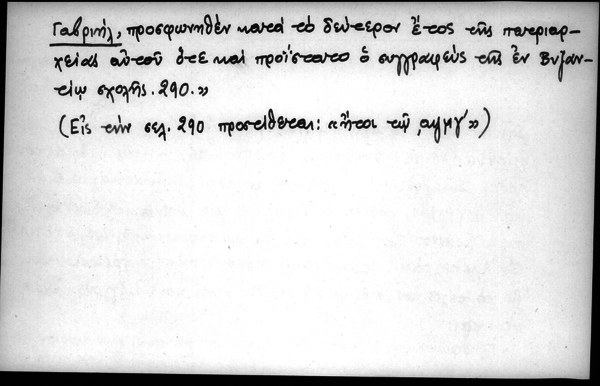 Γαβριήλ, προσφωνηθὲν κατὰ τὸ δεύτερον ἔτος τῆς πατριαρ-
χείας αὐτοῦ ὅτε καὶ προΐστατο ὁ συγγραφεὺς τῆς ἐν Βυζαν-
τίῳ σχολῆς. 290.»
(Εἰς τὴν σελ. 290 προστίθεται: «ἤτοι τῷ ͵αψμγʹ»)